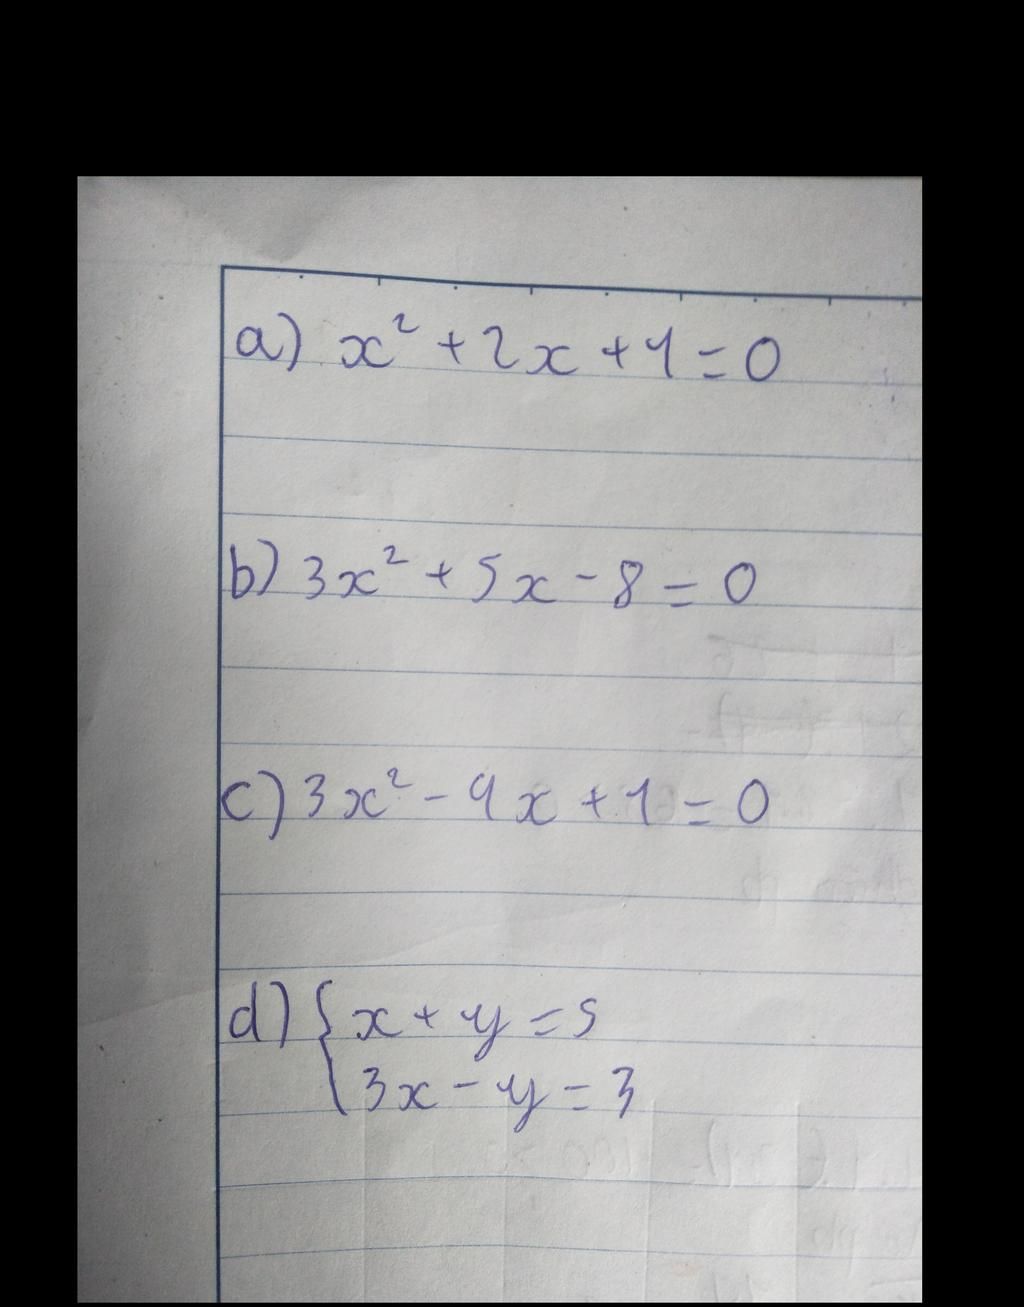 a) x² + 2x + 1 = 0
b) 3x² + 5x - 8 = 0
c) 3x² - 4x + 1 = 0
d) { x + y = 5
3x - y = 3